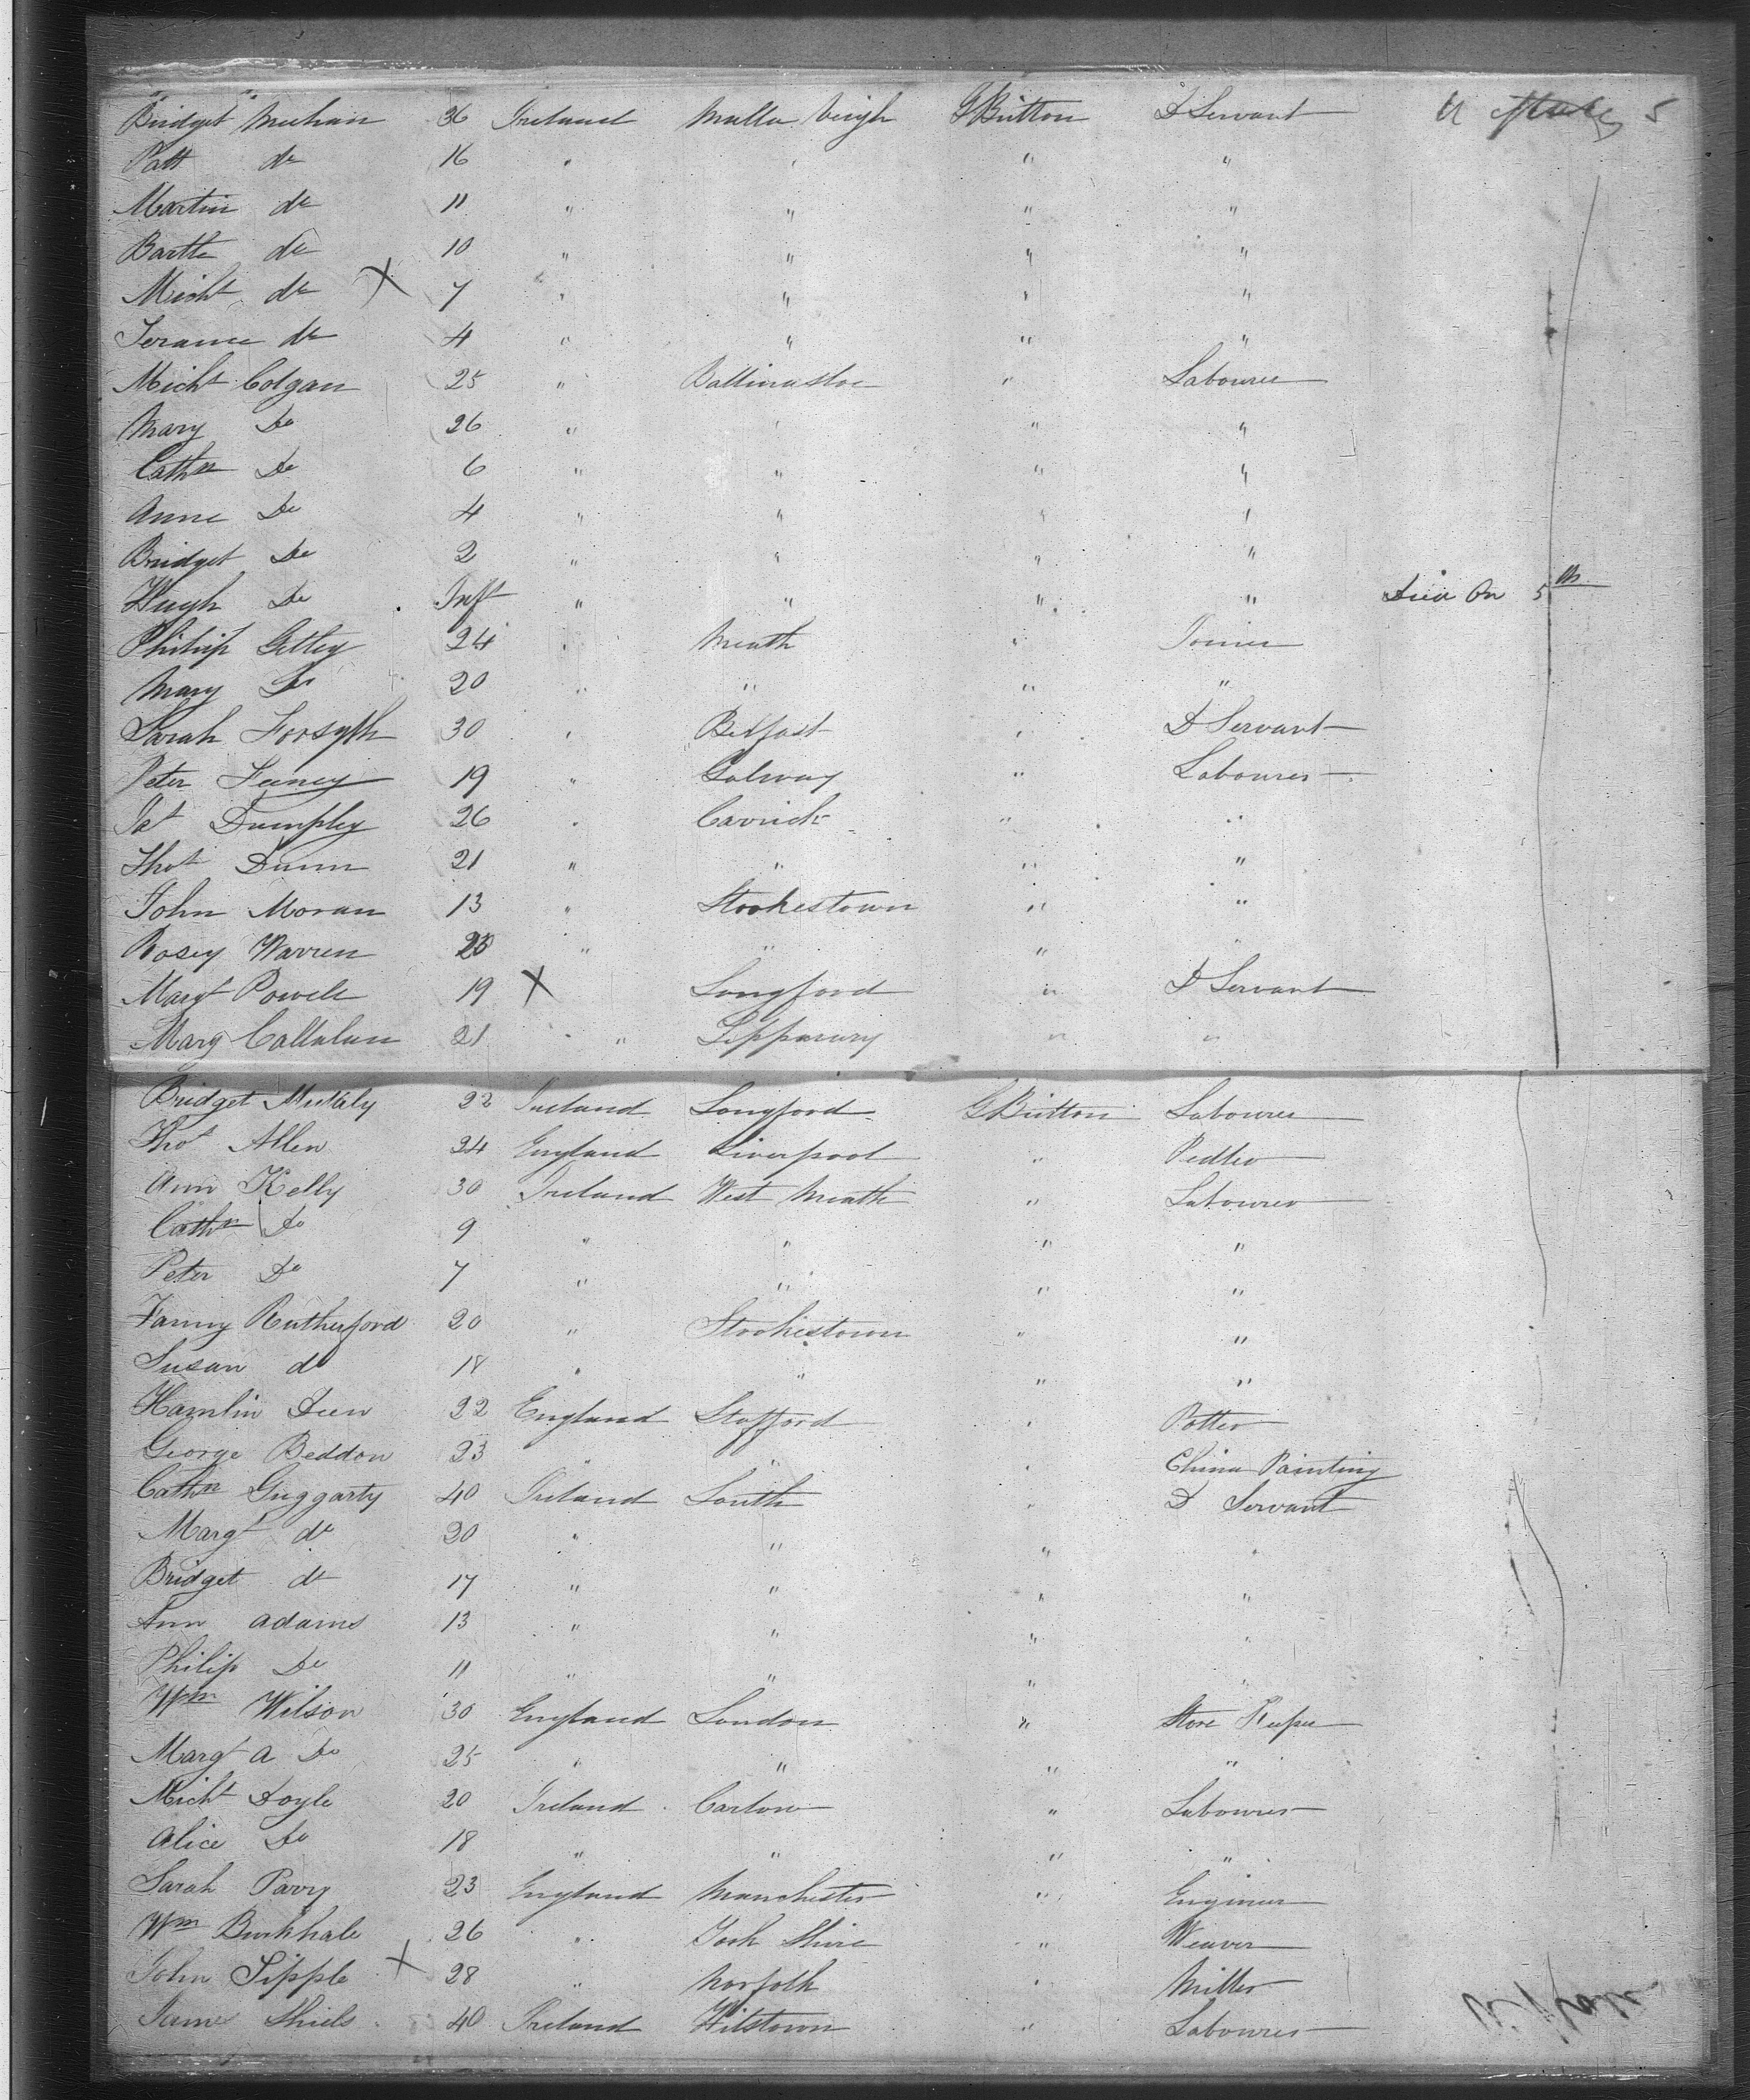 Bridget Meehan 36 Ireland Mulla Veigh G Britton D Servant U States 5
Patt do 16 " " " "
Martin do 11 " " " "
Barth do 10 " " " "
Michl do X 7 " " " "
Terance do 4 " " " "
Michl Colgan 25 " Ballinasloe " Labourer
Mary Do 26 " " " "
Cathn Do 6 " " " "
Anne Do 4 " " " "
Bridget Do 2 " " " "
Hugh Do Inft " " " " Died On 5th
Philip Gilley 24 " Meath " Joiner
Mary Do 20 " " " "
Sarah Forsyth 30 " Belfast " D Servant
Peter Feeney 19 " Galway " Labourer
Pat Dumphy 26 " Carrick " "
Thos Dunn 21 " " " "
John Moran 13 " Strokestown " "
Rosey Warren 25 " " " "
Margt Powell 19 X Longford " D Servant
Mary Callahan 21 " Tipparary " "
Bridget 22 Ireland Longford G Britton Labourer
Thos Allen 24 England Liverpool " Pedler
Ann Kelly 30 Ireland West Meath " Labourer
Cathn Do 9 " " " "
Peter Do 7 " " " "
Fanny Rutherford 20 " Strokestown " "
Susan do 18 " " " "
Hamlin Deen 22 England Stafford " Potter
George Beddon 23 " " " China Painting
Cathn Guggarty 40 Ireland Louth " D Servant
Margt do 20 " " " "
Bridget do 17 " " " "
Ann Adams 13 " " " "
Philip Do 11 " " " "
Wm Wilson 30 England London " Store Keeper
Margt A Do 25 " " " "
Michl Doyle 20 Ireland Carlow " Labourer
Alice Do 18 " " " "
Sarah Parry 23 England Manchester " Engineer
Wm Burkhale 26 " York Shire " Weaver
John Tipple X 28 " Norfolk " Miller
James Shiels 40 Ireland Wilstown " Labourer